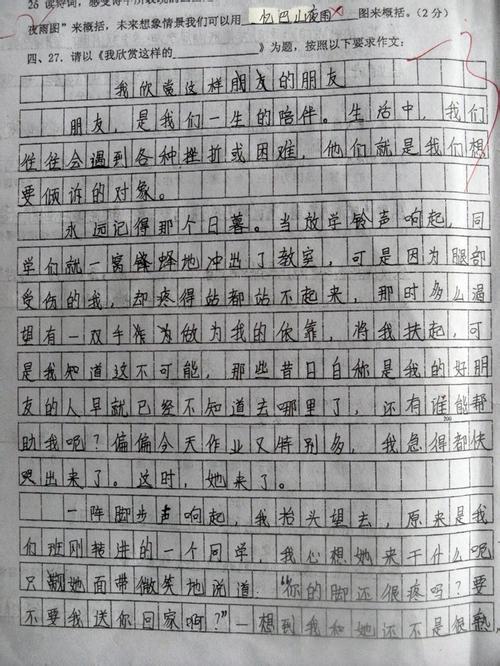 26 读诗词，感受得
夜雨图”来概括，未来想象情景我们可以用 忆巴山夜雨 图来概括。(2分)
四、27. 请以《我欣赏这样的》为题，按照以下要求作文：
我欣赏这样朋友的朋友
朋友，是我们一生的陪伴。生活中，我们
往往会遇到各种挫折或困难，他们就是我们想
要倾诉的对象。
永远记得那个日暮。当放学铃声响起，同
学们就一窝锋蜂地冲出了教室，可是因为腿部
受伤的我，却疼得站都站不起来，那时多么渴
望有一双手作为做为我的依靠，将我扶起，可
是我知道这不可能，那些昔日自称是我的好朋
友的人早就已经不知道去哪里了，还有谁能帮
200
助我呢？偏偏今天作业又特别多，我急得都快
哭出来了。这时，她来了。
一阵脚步声响起，我抬头望去，原来是我
们班刚转进的一个同学，我心想她来干什么呢
只见她面带微笑地说道：“你的脚还很疼吗？要
不要我送你回家啊？”一想到我和她还不是很熟，